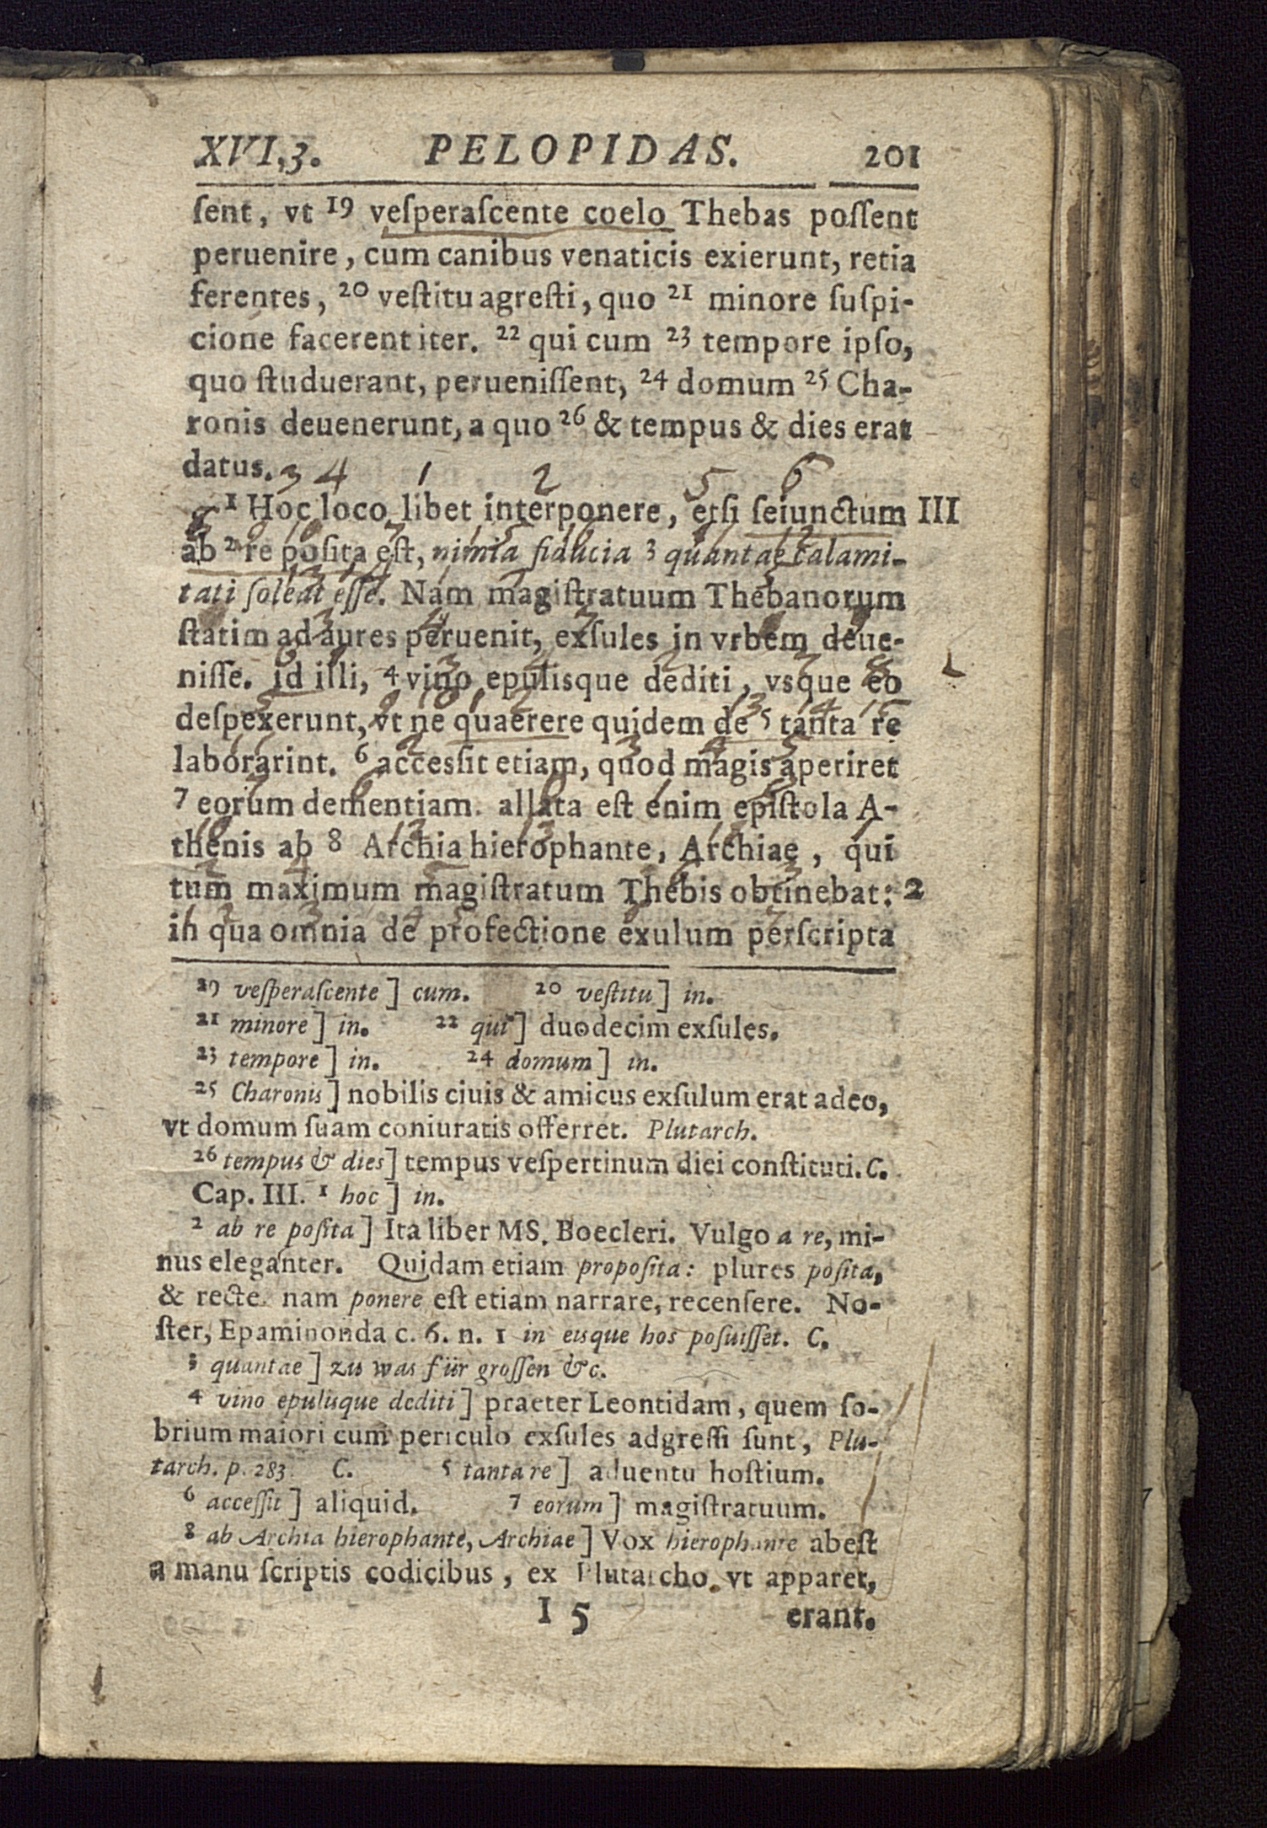 XVI,3. PELOPIDAS. 201
sent, vt 19 vesperascente coelo Thebas possent
peruenire, cum canibus venaticis exierunt, retia
ferentes, 20 vestitu agresti, quo 21 minore suspi-
cione facerent iter. 22 qui cum 23 tempore ipso,
quo studuerant, peruenissent, 24 domum 25 Cha-
ronis deuenerunt, a quo 26 & tempus & dies erat
datus. 3 4 1 2 5 6
1 Hoc loco libet interponere, etsi seiunctum III
ab 2 re posita est, nimia fiducia 3 quantae calami-
tati soleat esse. Nam magistratuum Thebanorum
statim ad aures peruenit, exsules in vrbem deue-
nisse. id illi, 4 vino epulisque dediti, vsque eo
despexerunt, vt ne quaerere quidem de 5 tanta re
laborarint. 6 accessit etiam, quod magis aperiret
7 eorum dementiam. allata est enim epistola A-
thenis ab 8 Archia hierophante, Archiae, qui
tum maximum magistratum Thebis obtinebat: 2
in qua omnia de profectione exulum perscripta
19 vesperascente] cum. 20 vestitu] in.
21 minore] in. 22 qui] duodecim exsules.
23 tempore] in. 24 domum] in.
25 Charonis] nobilis ciuis & amicus exsulum erat adeo,
vt domum suam coniuratis offerret. Plutarch.
26 tempus & dies] tempus vespertinum diei constituti. C.
Cap. III. 1 hoc] in.
2 ab re posita] Ita liber MS. Boecleri. Vulgo a re, mi-
nus eleganter. Quidam etiam proposita: plures posita,
& recte. nam ponere est etiam narrare, recensere. No-
ster, Epaminonda c. 6. n. 1 in eisque hos posuisset. C.
3 quantae] zu was für grossen &c.
4 vino epulisque dediti] praeter Leontidam, quem so-
brium maiori cum periculo exsules adgressi sunt, Plu-
tarch. p. 283. C. 5 tanta re] aduentu hostium.
6 accessit] aliquid. 7 eorum] magistratuum.
8 ab Archia hierophante, Archiae] Vox hierophante abest
a manu scriptis codicibus, ex Plutarcho, vt apparet,
I 5 erant.